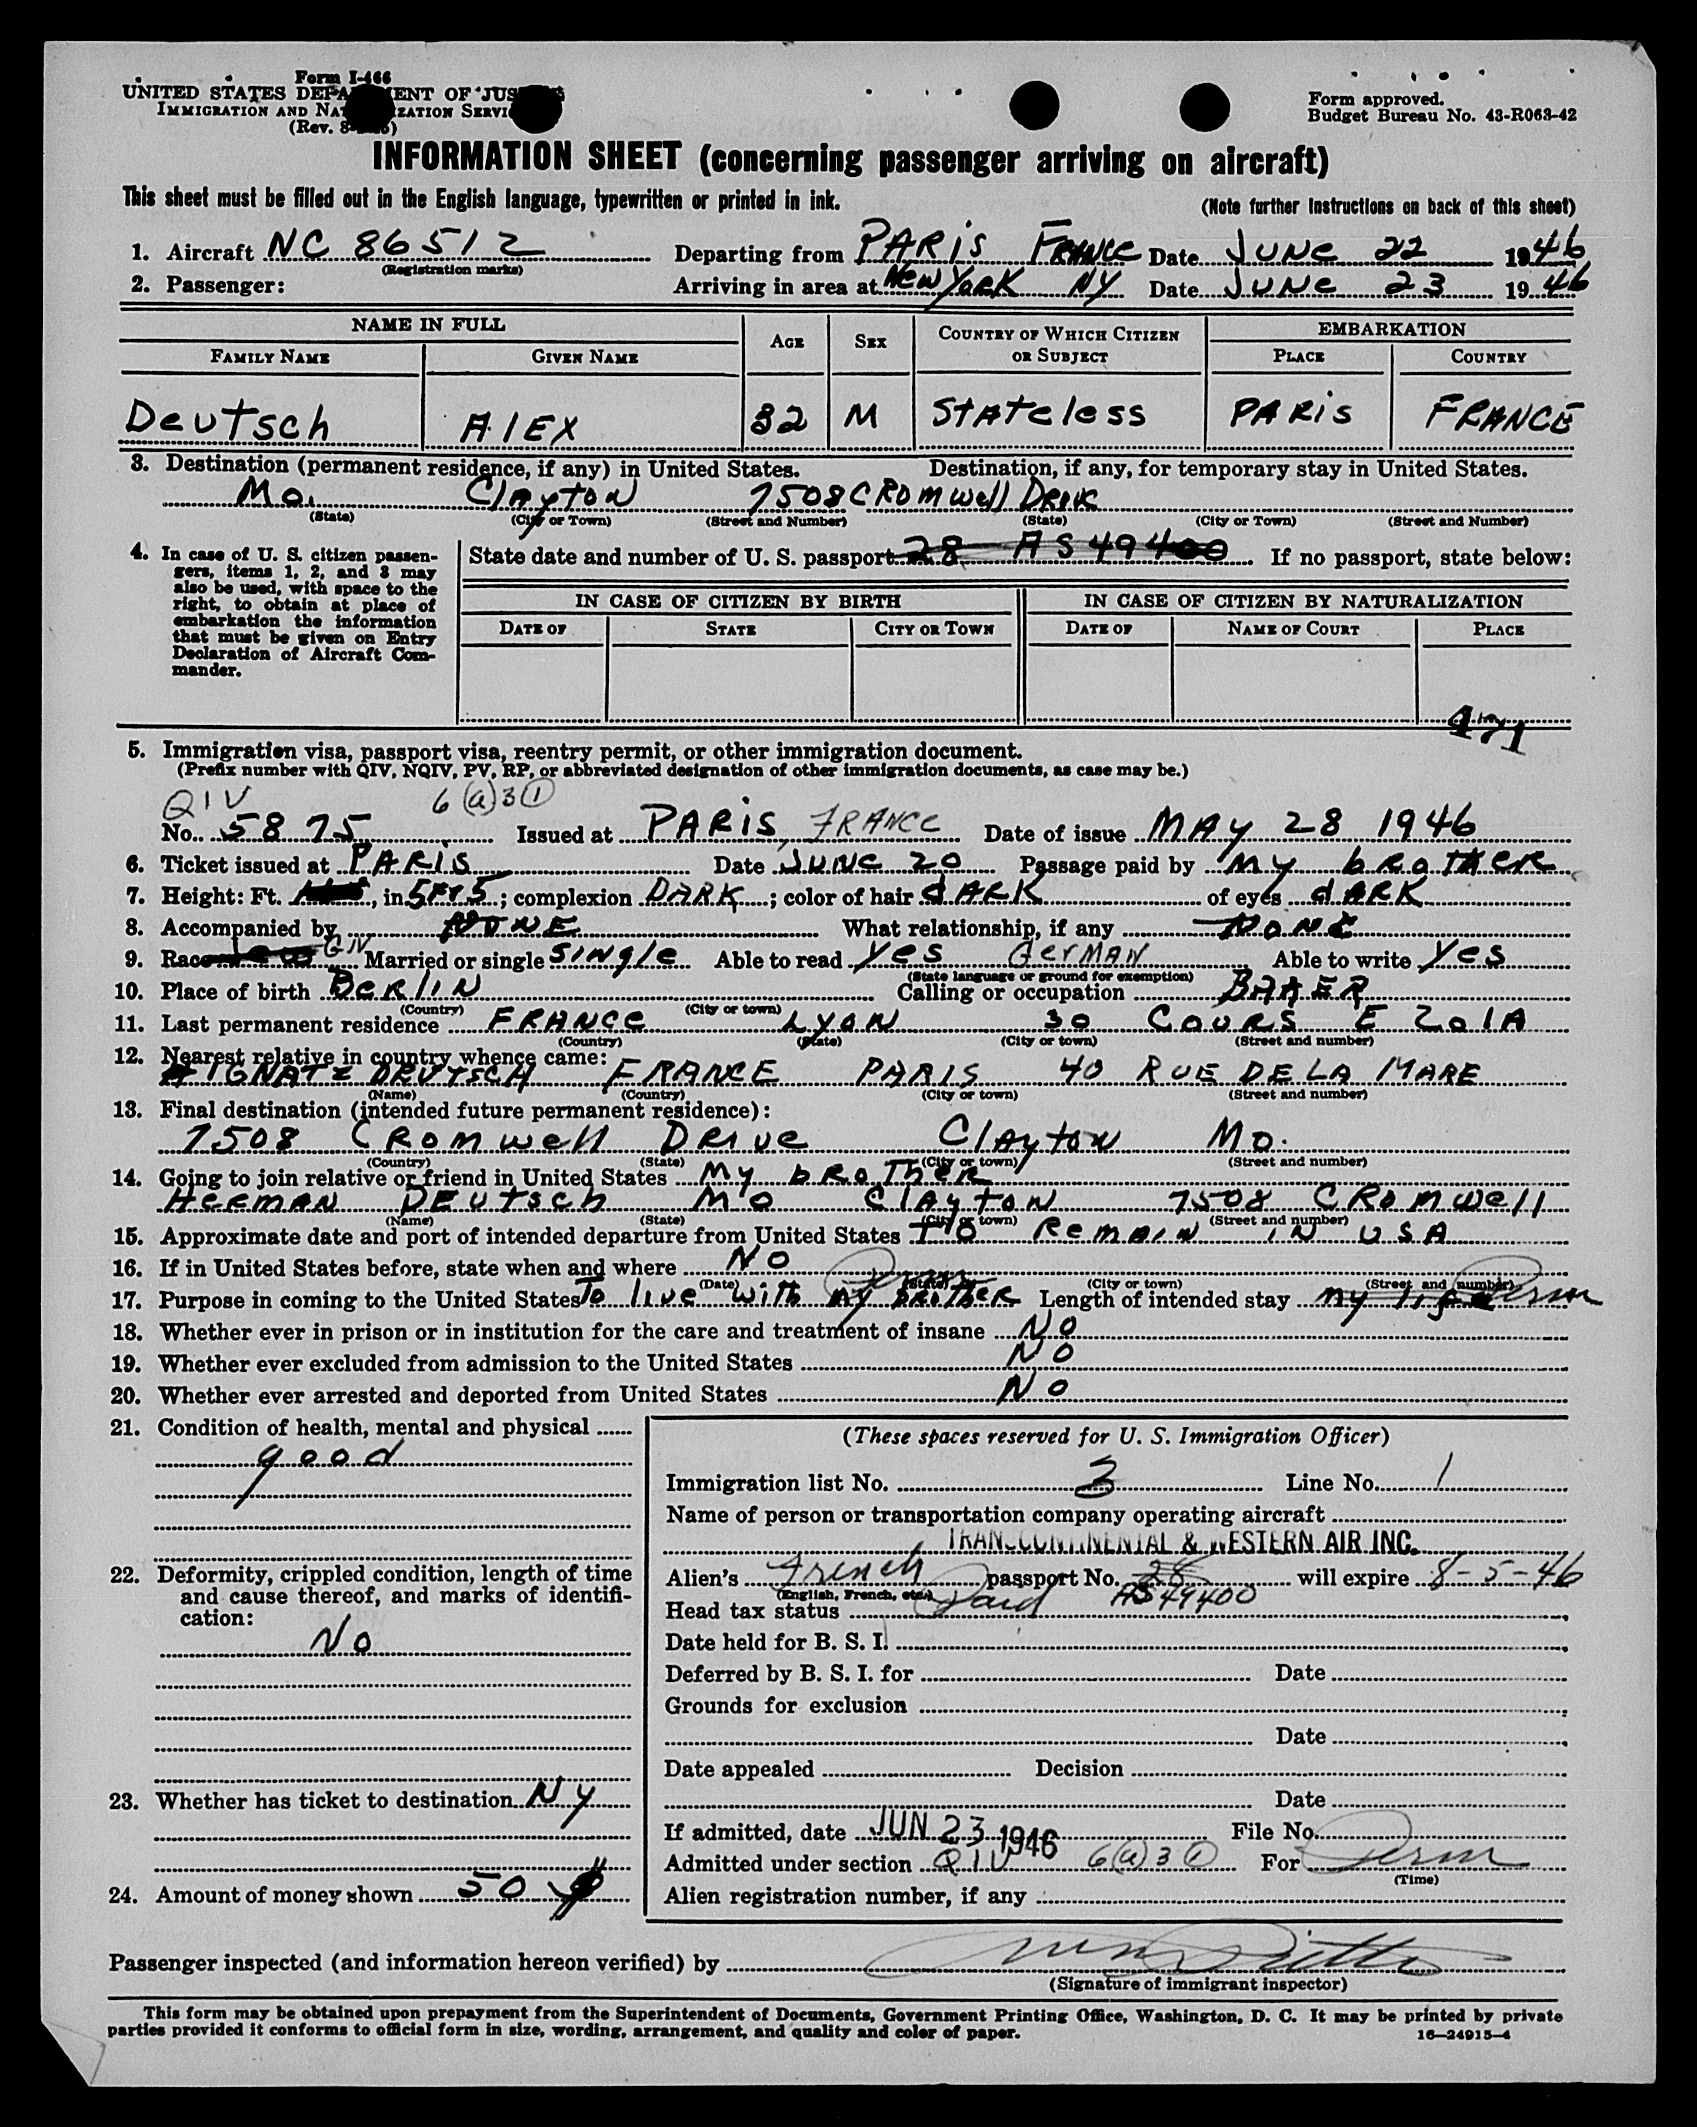 Form I-466
UNITED STATES DEPA ENT OF JUS
IMMIGRATION AND NAT IZATION SERVI
(Rev. 8-
Form approved.
Budget Bureau No. 43-R063-42
INFORMATION SHEET (concerning passenger arriving on aircraft)
This sheet must be filled out in the English language, typewritten or printed in ink.
(Note further instructions on back of this sheet)
1. Aircraft NC 86512 Departing from PARiS FRANCE Date JUNe 22 1946
(Registration marks)
2. Passenger: Arriving in area at New YorK NY Date JUNe 23 1946
NAME IN FULL AGE SEX COUNTRY OF WHICH CITIZEN OR SUBJECT EMBARKATION
FAMILY NAME GIVEN NAME PLACE COUNTRY
Deutsch AlEX 32 M StAteless PARiS FRANCE
3. Destination (permanent residence, if any) in United States. Destination, if any, for temporary stay in United States.
Mo. ClAytoN 7508 CROMwell
(State) (City or Town) (Street and Number) (State) (City or Town) (Street and Number)
4. In case of U. S. citizen passengers, items 1, 2, and 3 may also be used, with space to the right, to obtain at place of embarkation the information that must be given on Entry Declaration of Aircraft Commander.
State date and number of U. S. passport 28 AS 49400 If no passport, state below:
IN CASE OF CITIZEN BY BIRTH IN CASE OF CITIZEN BY NATURALIZATION
DATE OF STATE CITY OR TOWN DATE OF NAME OF COURT PLACE
471
5. Immigration visa, passport visa, reentry permit, or other immigration document.
(Prefix number with QIV, NQIV, PV, RP, or abbreviated designation of other immigration documents, as case may be.)
QIV 6(a)3(1)
No. 5875 Issued at PARiS, FRANCE Date of issue MAY 28 1946
6. Ticket issued at PARiS Date JUNe 20 Passage paid by My bROTHeR
7. Height: Ft. , in 5 FT 5; complexion DARK; color of hair dARK of eyes dARK
8. Accompanied by NONE What relationship, if any NONE
9. Race QIV Married or single SiNgle Able to read Yes GerMAN Able to write Yes
(State language or ground for exemption)
10. Place of birth BeRliN Calling or occupation
(Country) (City or town)
11. Last permanent residence FRANCe LYON 30 COURS E ZolA
(Country) (State) (City or town) (Street and number)
12. Nearest relative in country whence came:
DEUTSCH FRANCE PARIS 40 RUE DE LA MARE
(Name) (Country) (City or town) (Street and number)
13. Final destination (intended future permanent residence):
7508 CROMwell DRive ClAytoN Mo.
(Country) (State) (City or town) (Street and number)
14. Going to join relative or friend in United States My bROTHeR
HeRMAN DEUtSch Mo ClAytoN 7508 CROMwell
(Name) (State) (City or town) (Street and number)
15. Approximate date and port of intended departure from United States To ReMAIN IN USA
16. If in United States before, state when and where NO
(Date) (State) (City or town) (Street and number)
17. Purpose in coming to the United States To live with my brotHeR Length of intended stay my life Perm
18. Whether ever in prison or in institution for the care and treatment of insane NO
19. Whether ever excluded from admission to the United States NO
20. Whether ever arrested and deported from United States NO
21. Condition of health, mental and physical
good
22. Deformity, crippled condition, length of time and cause thereof, and marks of identification:
No
23. Whether has ticket to destination NY
24. Amount of money shown 50 $
(These spaces reserved for U. S. Immigration Officer)
Immigration list No. 3 Line No. 1
Name of person or transportation company operating aircraft
TRANSCONTINENTAL & WESTERN AIR INC.
Alien's French passport No. 28 AS49400 will expire 8-5-46
(English, French, etc.)
Head tax status Paid
Date held for B. S. I.
Deferred by B. S. I. for Date
Grounds for exclusion
Date
Date appealed Decision
Date
If admitted, date JUN 23 1946 File No.
Admitted under section QIV 6(a)3(1) For Perm
(Time)
Alien registration number, if any
Passenger inspected (and information hereon verified) by
(Signature of immigrant inspector)
This form may be obtained upon prepayment from the Superintendent of Documents, Government Printing Office, Washington, D. C. It may be printed by private
parties provided it conforms to official form in size, wording, arrangement, and quality and color of paper.
16—24915-4